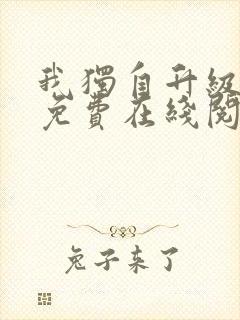 我獨自升級
免費在綫閱
兔子来了